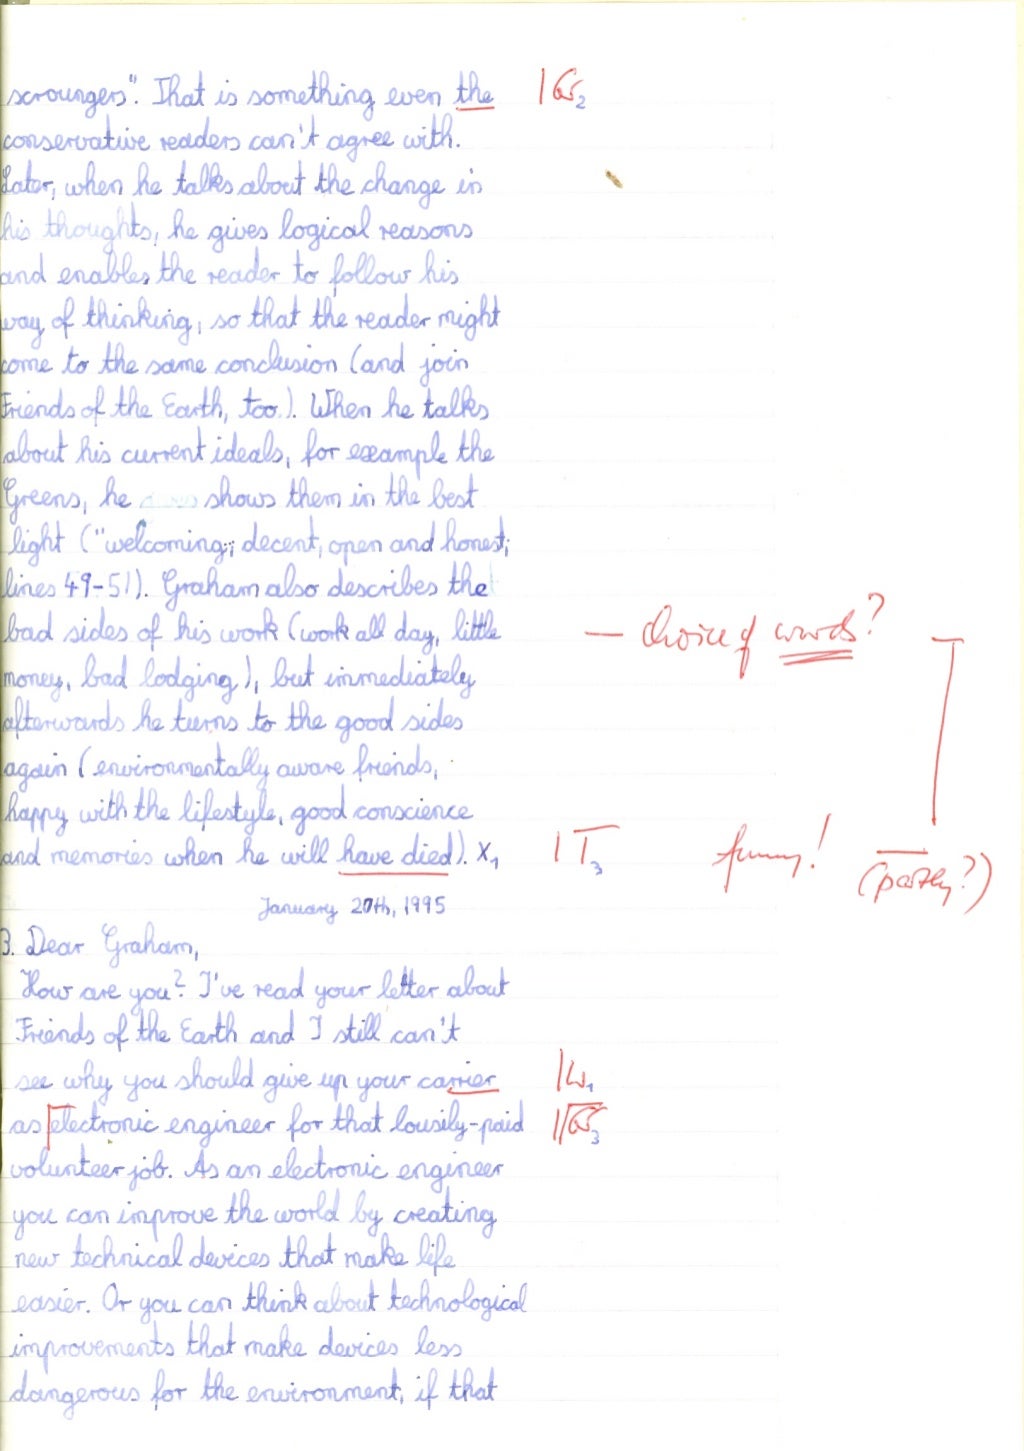 scroungers". That is something even the |Gr2
conservative readers can't agree with.
Later, when he talks about the change in
his thoughts, he gives logical reasons
and enables the reader to follow his
way of thinking, so that the reader might
come to the same conclusion (and join
Friends of the Earth, too.). When he talks
about his current ideals, for example the
Greens, he shows them in the best
light ("welcoming; decent, open and honest;
lines 49-51). Graham also describes the
bad sides of his work (work all day, little — choice of words?
money, bad lodging), but immediately
afterwards he turns to the good sides
again (environmentally aware friends,
happy with the lifestyle, good conscience
and memories when he will have died). x1 |T3 funny! (partly?)
January 20th, 1995
3. Dear Graham,
How are you? I've read your letter about
Friends of the Earth and I still can't
see why you should give up your carrier |W1
as electronic engineer for that lousily-paid |Gr3
volunteer job. As an electronic engineer
you can improve the world by creating
new technical devices that make life
easier. Or you can think about technological
improvements that make devices less
dangerous for the environment, if that